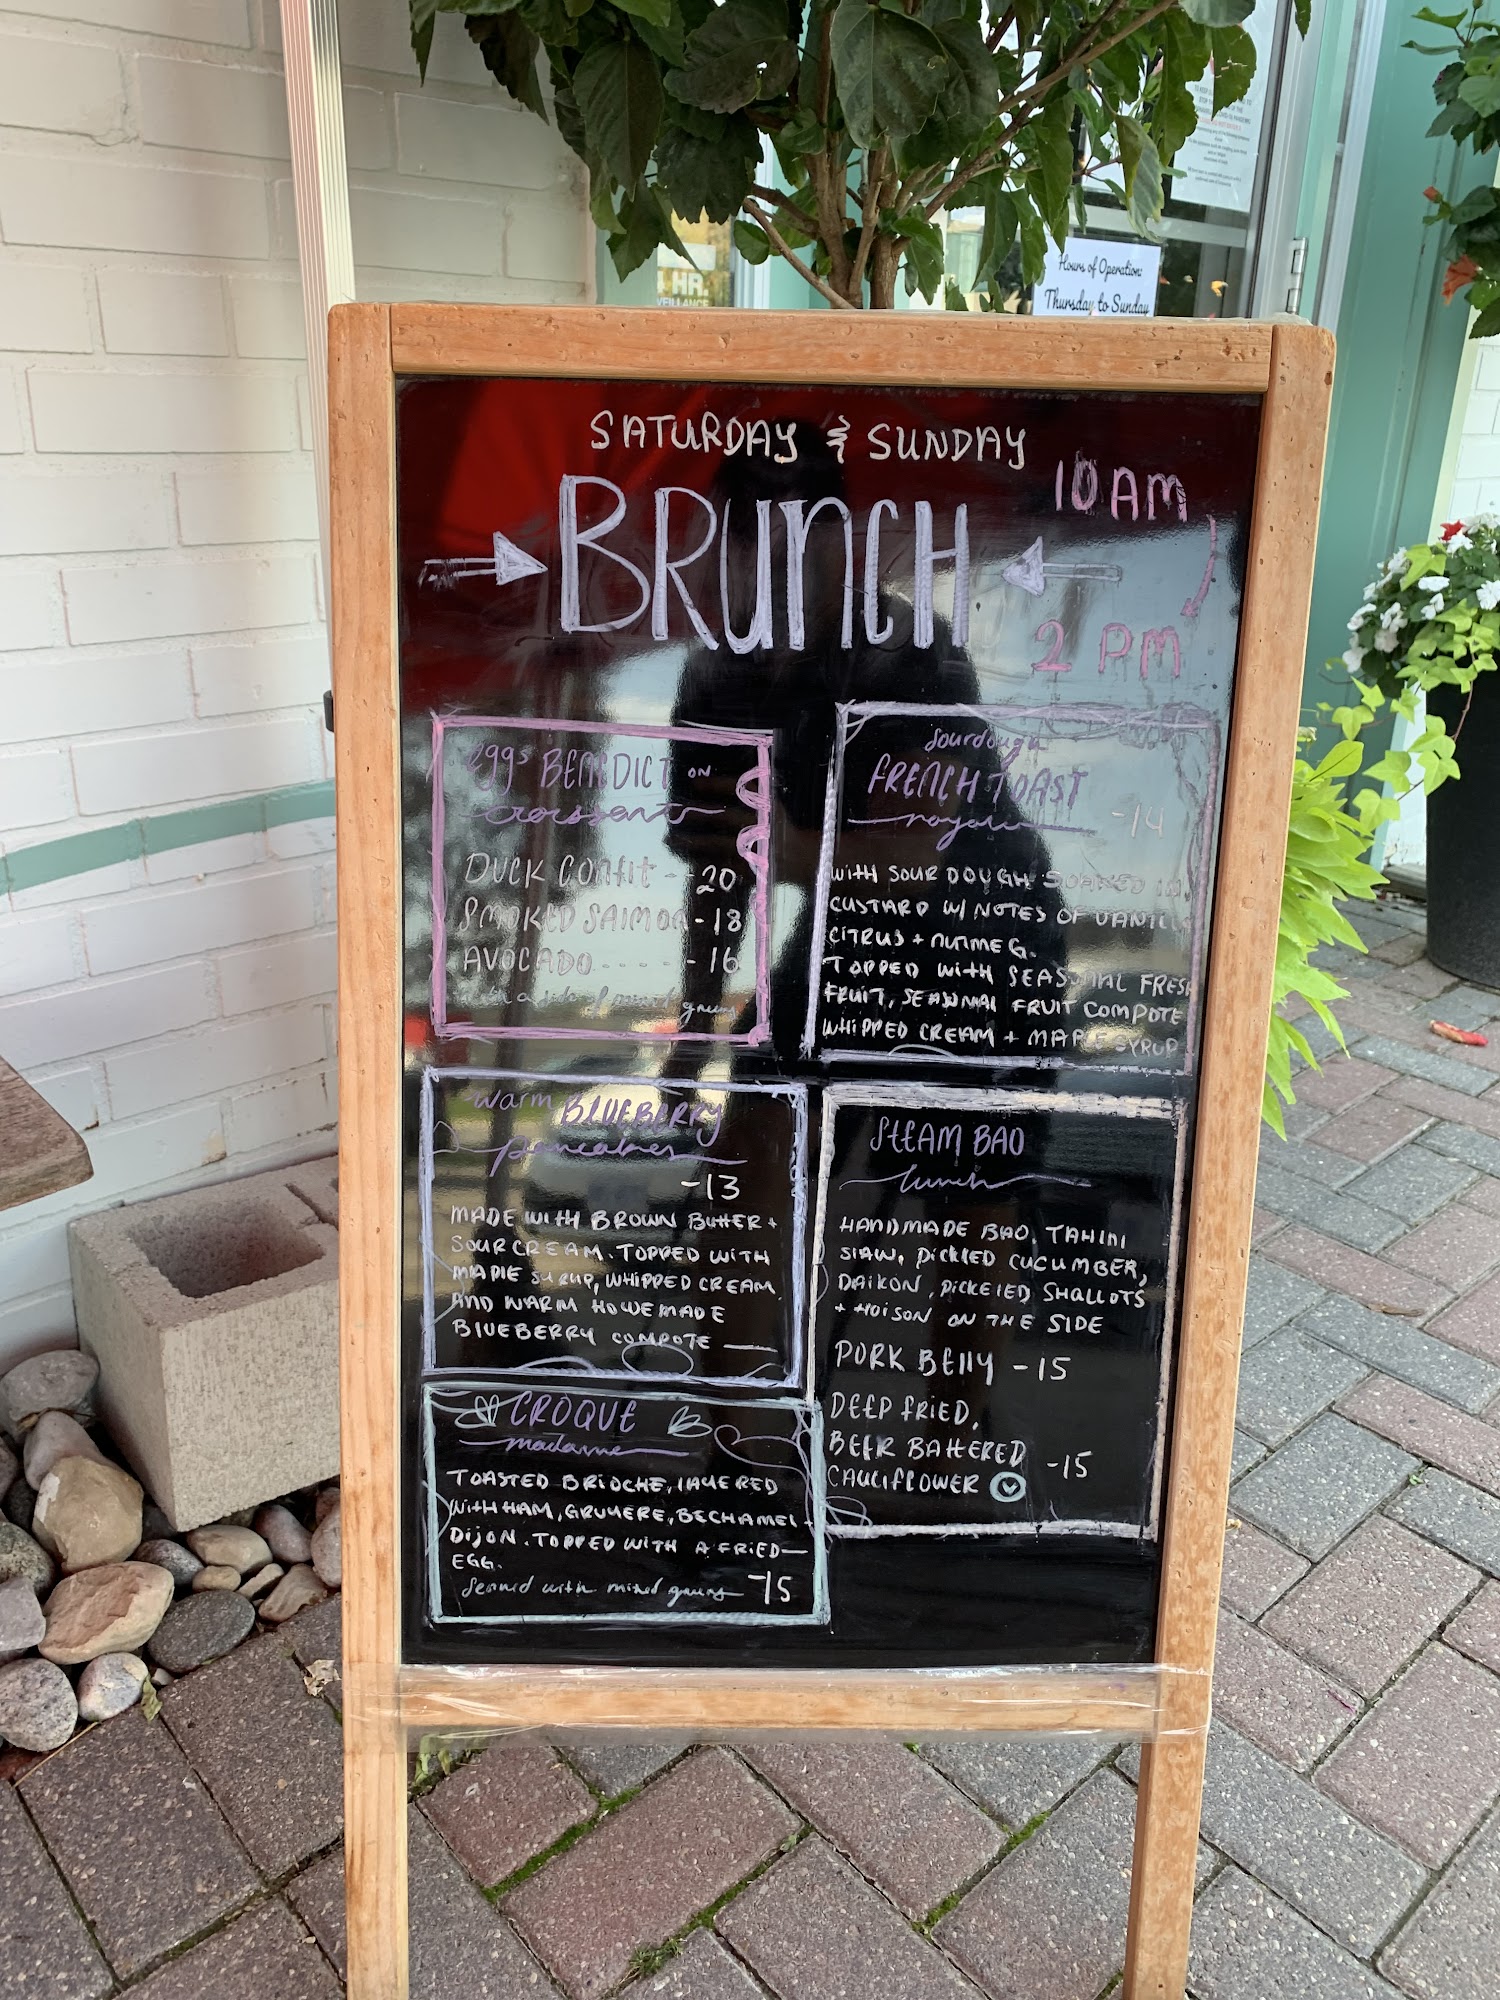 Hours of Operation:
Thursday to Sunday
HR.
SATURDAY & SUNDAY
BRUNCH
10 AM
2 PM
eggs BENEDICT ON
croissant
DUCK CONFIT - 20
SMOKED SALMON - 18
AVOCADO ----- 16
with a side of mixed greens
Sourdough
FRENCH TOAST
royale -14
WITH SOUR DOUGH SOAKED IN
CUSTARD W/ NOTES OF VANILLA
CITRUS + NUTMEG.
TOPPED WITH SEASONAL FRESH
FRUIT, SEASONAL FRUIT COMPOTE
WHIPPED CREAM + MAPLE SYRUP
warm BLUEBERRY
pancakes
-13
MADE WITH BROWN BUTTER +
SOUR CREAM. TOPPED WITH
MAPLE SYRUP, WHIPPED CREAM
AND WARM HOMEMADE
BLUEBERRY COMPOTE
STEAM BAO
lunch
HANDMADE BAO, TAHINI
SLAW, PICKLED CUCUMBER,
DAIKON, PICKELED SHALLOTS
+ HOISON ON THE SIDE
PORK BELLY -15
DEEP FRIED,
BEER BATTERED
CAULIFLOWER V -15
CROQUE
madame
TOASTED BRIOCHE, LAYERED
WITH HAM, GRUYERE, BECHAMEL +
DIJON. TOPPED WITH A FRIED
EGG.
Served with mixed greens -15